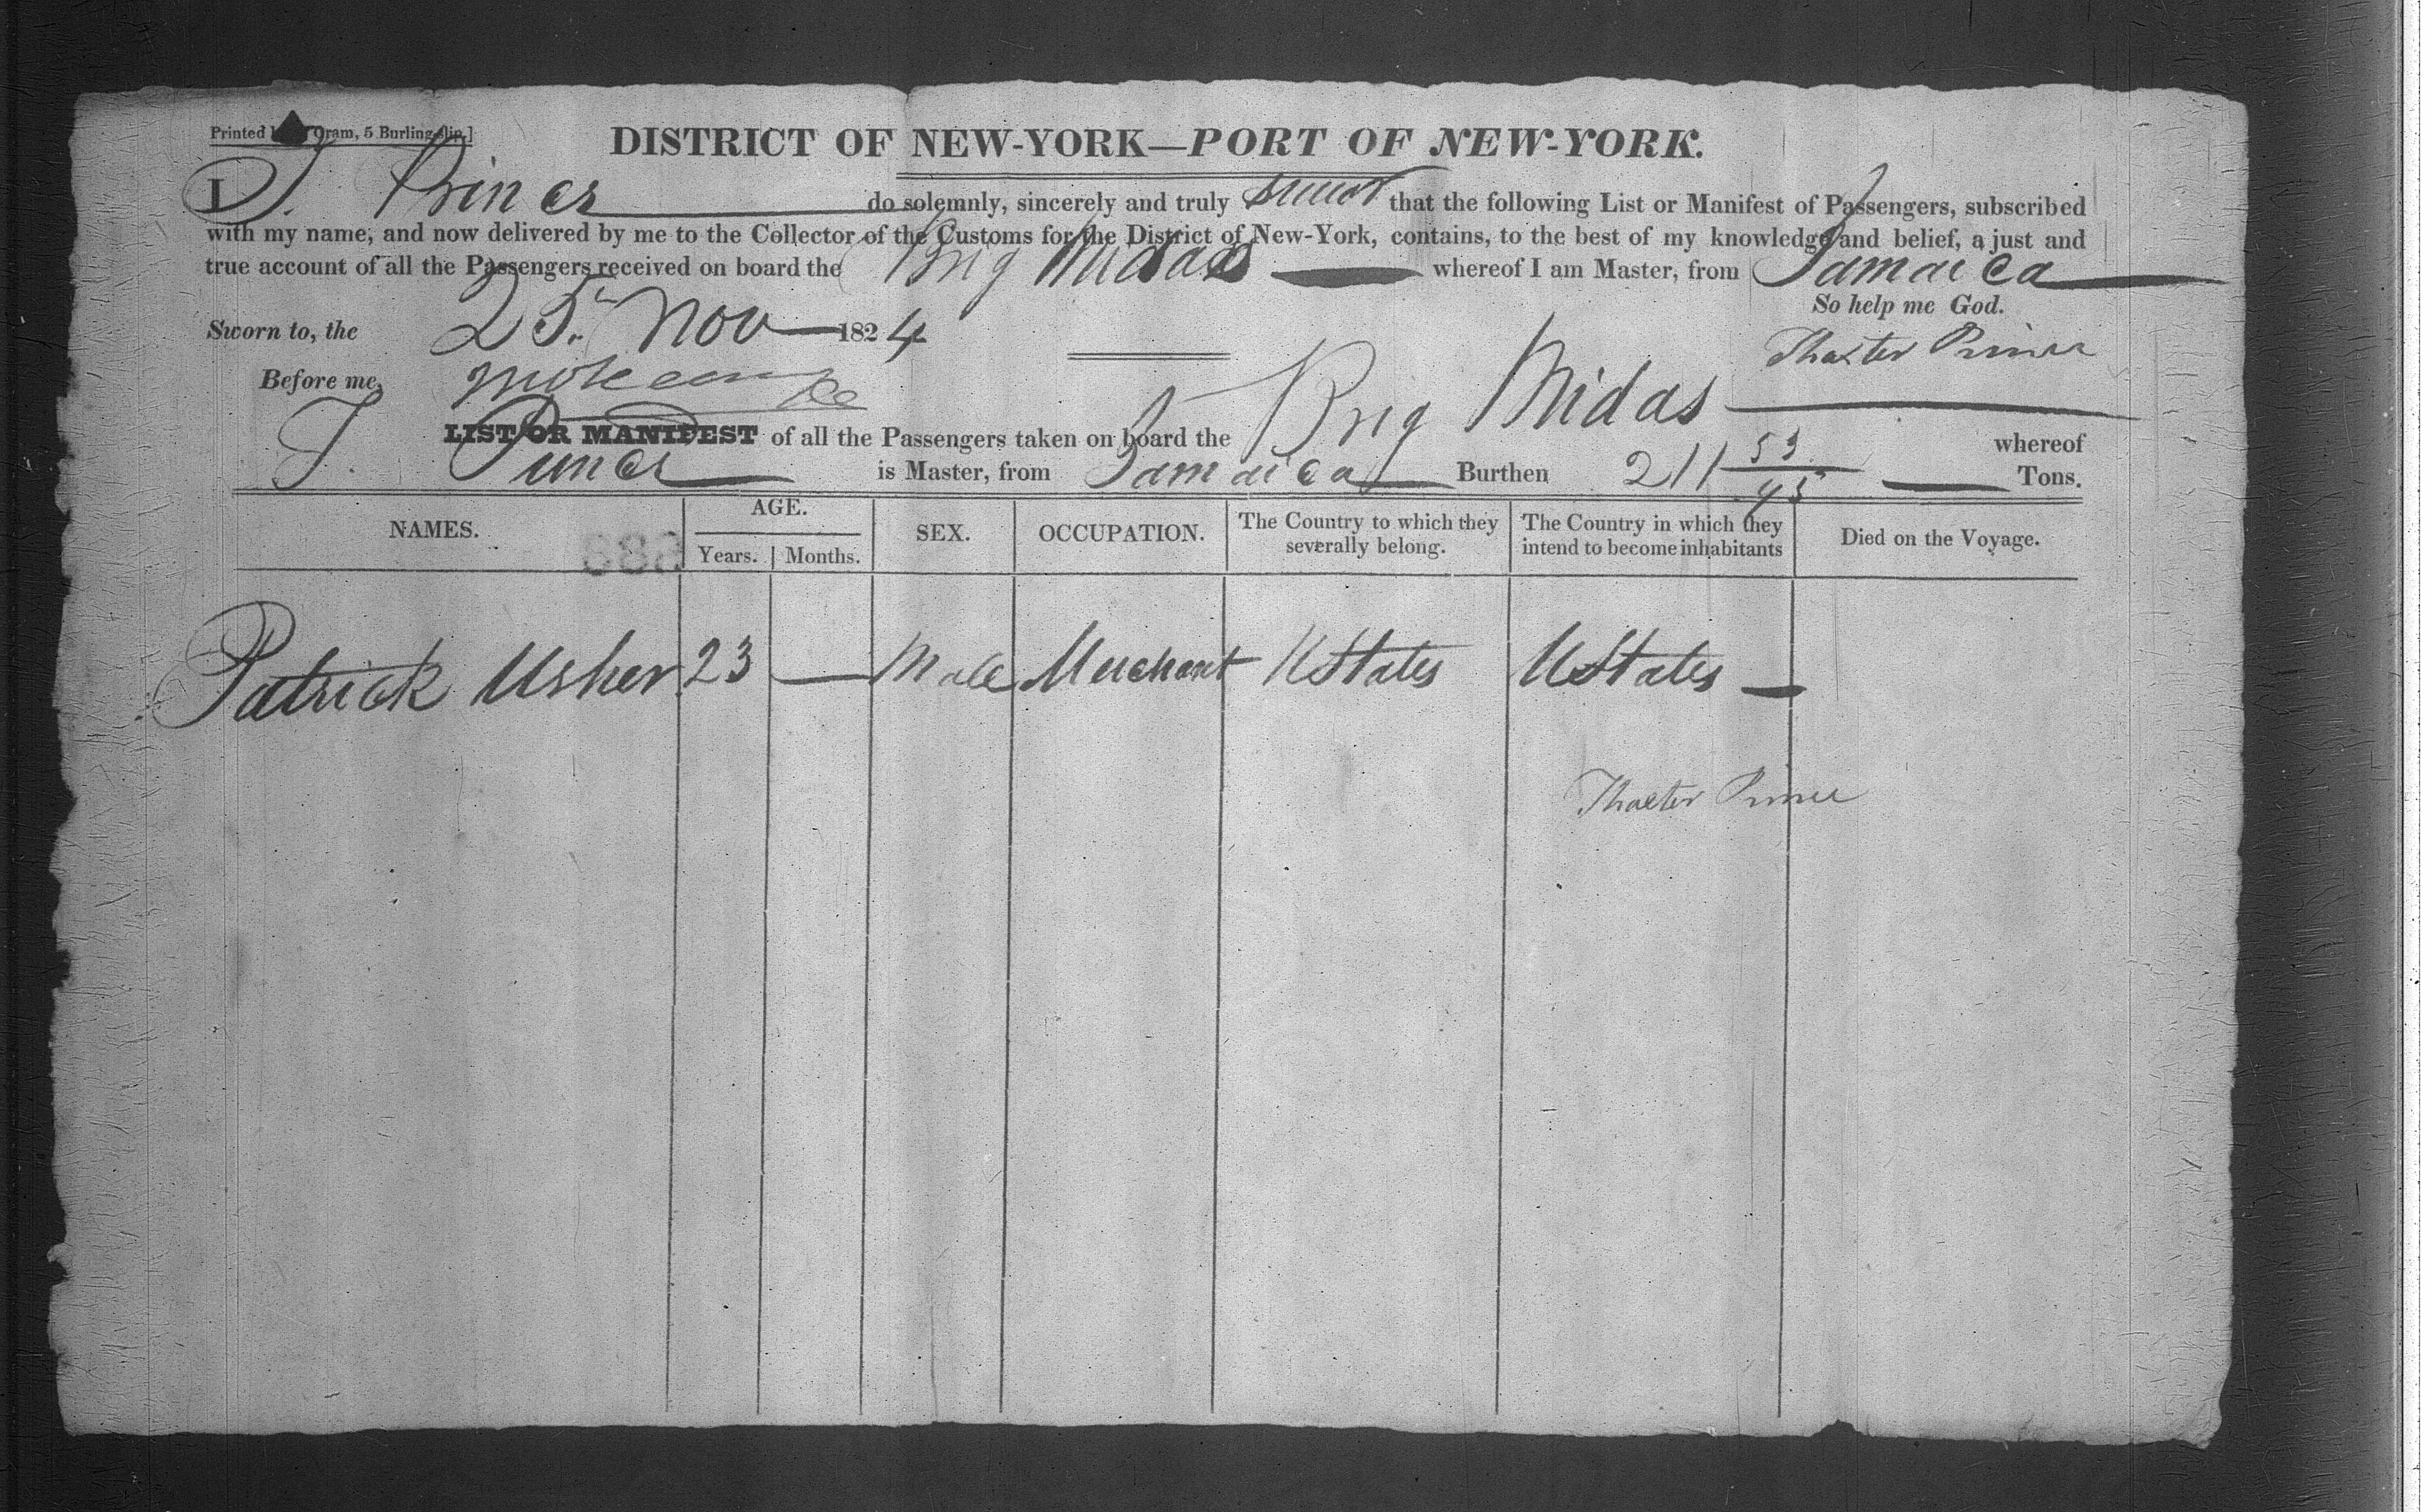 Printed by Oram, 5 Burling-slip.]
DISTRICT OF NEW-YORK—PORT OF NEW-YORK.
I T. Prince do solemnly, sincerely and truly swear that the following List or Manifest of Passengers, subscribed
with my name, and now delivered by me to the Collector of the Customs for the District of New-York, contains, to the best of my knowledge and belief, a just and
true account of all the Passengers received on board the Brig Midas whereof I am Master, from Jamaica
So help me God.
Sworn to, the 25 Nov 1824
Thaxter Prince
Before me,
LIST OR MANIFEST of all the Passengers taken on board the Brig Midas whereof
T. Prince is Master, from Jamaica Burthen 211 53/95 Tons.
NAMES. AGE. SEX. OCCUPATION. The Country to which they severally belong. The Country in which they intend to become inhabitants Died on the Voyage.
Years. Months.
Patrick Usher 23 — Male Merchant UStates UStates —
Thaxter Prince